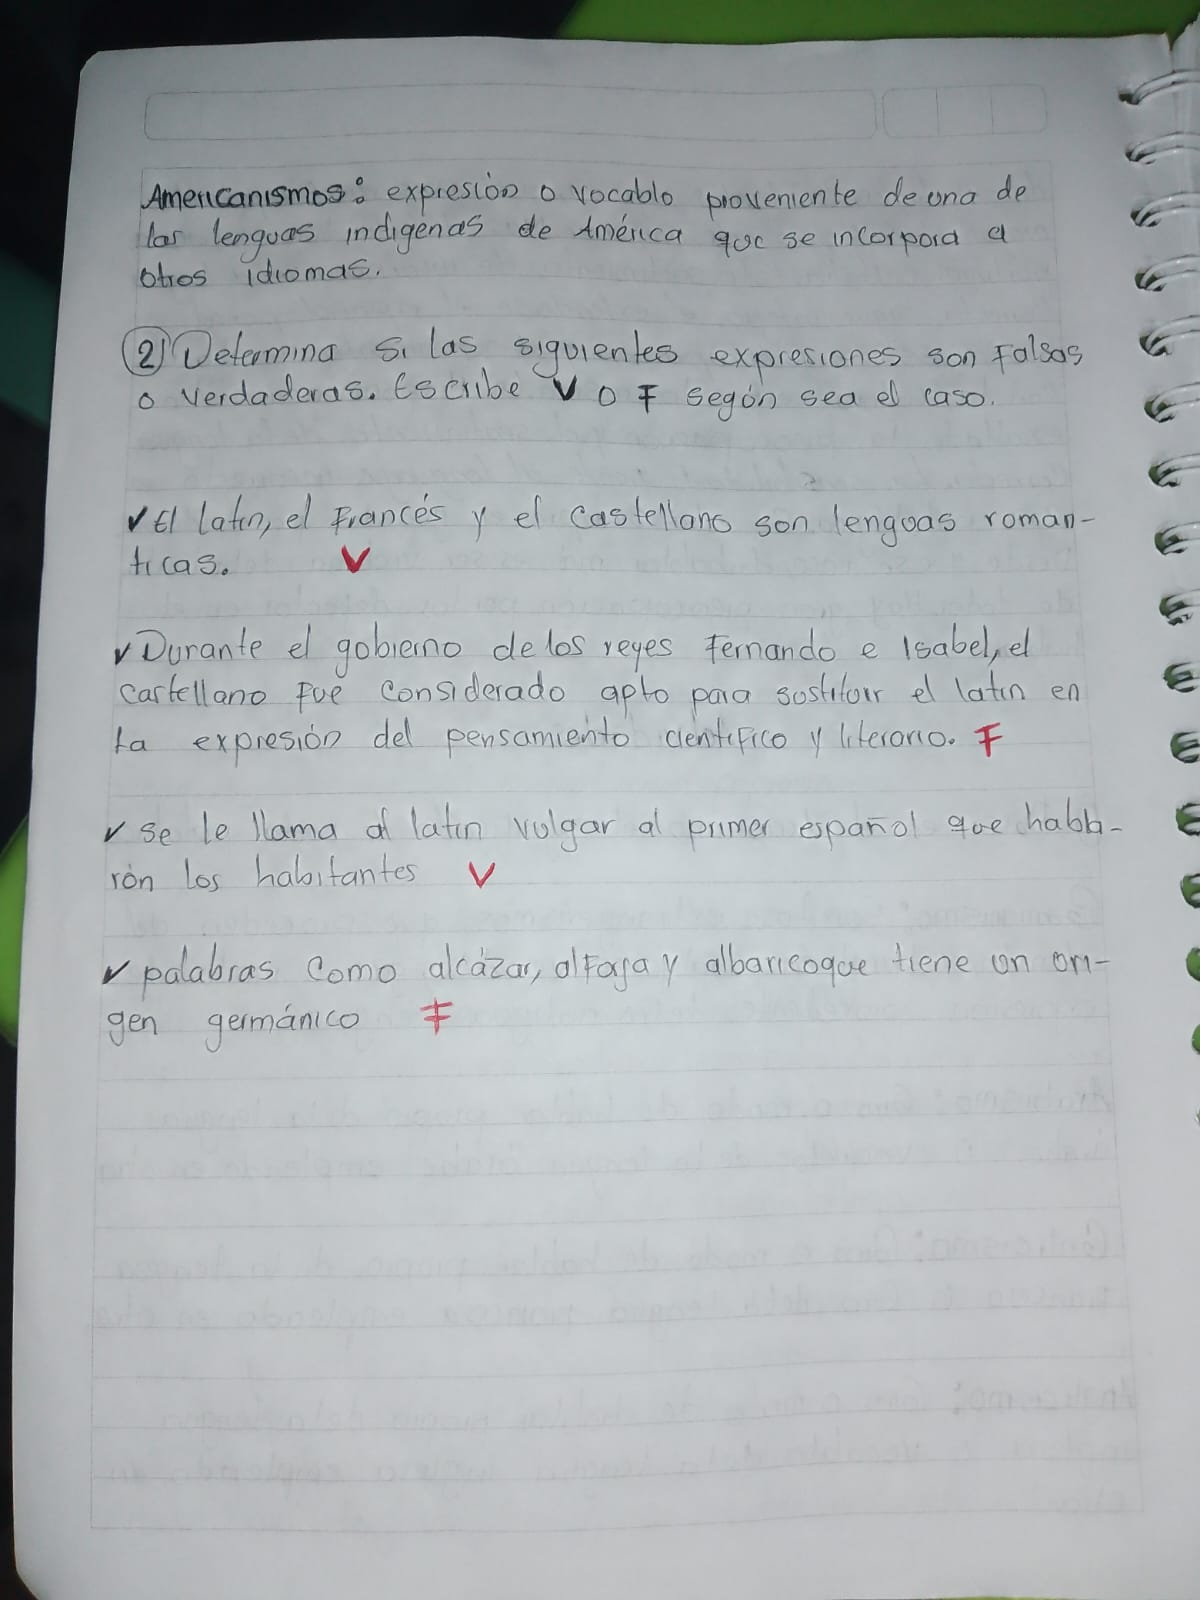 Americanismos: expresión o vocablo proveniente de una de
las lenguas indigenas de América que se incorpora a
otros idiomas.
2) Determina si las siguientes expresiones son Falsas
o verdaderas. Escribe V o F según sea el caso.
✓ El latin, el Francés y el castellano son lenguas roman-
ticas. V
✓ Durante el gobierno de los reyes Fernando e Isabel, el
castellano Fue considerado apto para sustituir el latin en
la expresión del pensamiento cientifico y literario. F
✓ se le llama al latin vulgar al primer español que habla-
rón los habitantes V
✓ palabras como alcázar, alfarja y albaricoque tiene un ori-
gen germánico F